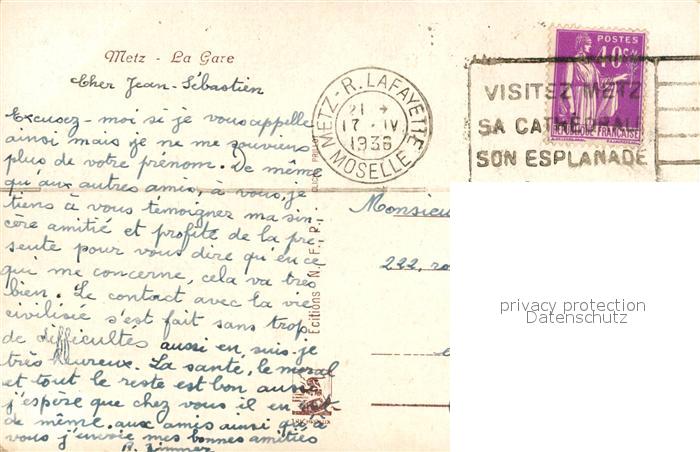 Metz - La Gare
Cher Jean-Sébastien
Excusez-moi si je vous appelle
ainsi mais je ne me souviens
plus de votre prénom. De même
qu'aux autres amis, à vous, je
tiens à vous témoigner ma sin-
cère amitié et profite de la pré-
sente pour vous dire qu'en ce
qui me concerne, cela va très
bien. Le contact avec la vie
civilisée s'est fait sans trop
de difficultés aussi en suis-je
très heureux. La santé, le moral
et tout le reste est bon aussi
j'espère que chez vous il en est
de même. aux amis ainsi qu'à
vous j'envoie mes bonnes amitiés
METZ-R. LAFAYETTE
21
17-IV
1936
MOSELLE
POSTES
40c
REPUBLIQUE FRANÇAISE
VISITEZ METZ
SA CATHEDRALE
SON ESPLANADE
Editions N.F.R.
Monsieu
222, ro
privacy protection
Datenschutz